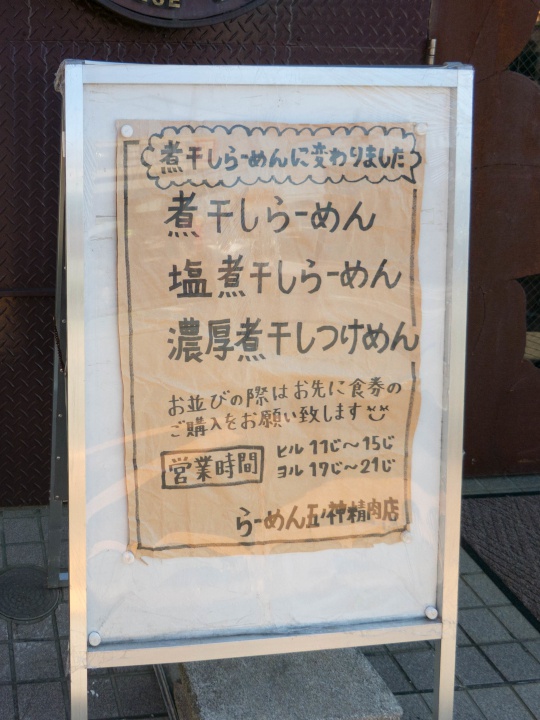 煮干しらーめんに変わりました
煮干しらーめん
塩煮干しらーめん
濃厚煮干しつけめん
お並びの際はお先に食券の
ご購入をお願い致します
営業時間
ヒル 11じ～15じ
ヨル 17じ～21じ
らーめん五ノ神精肉店